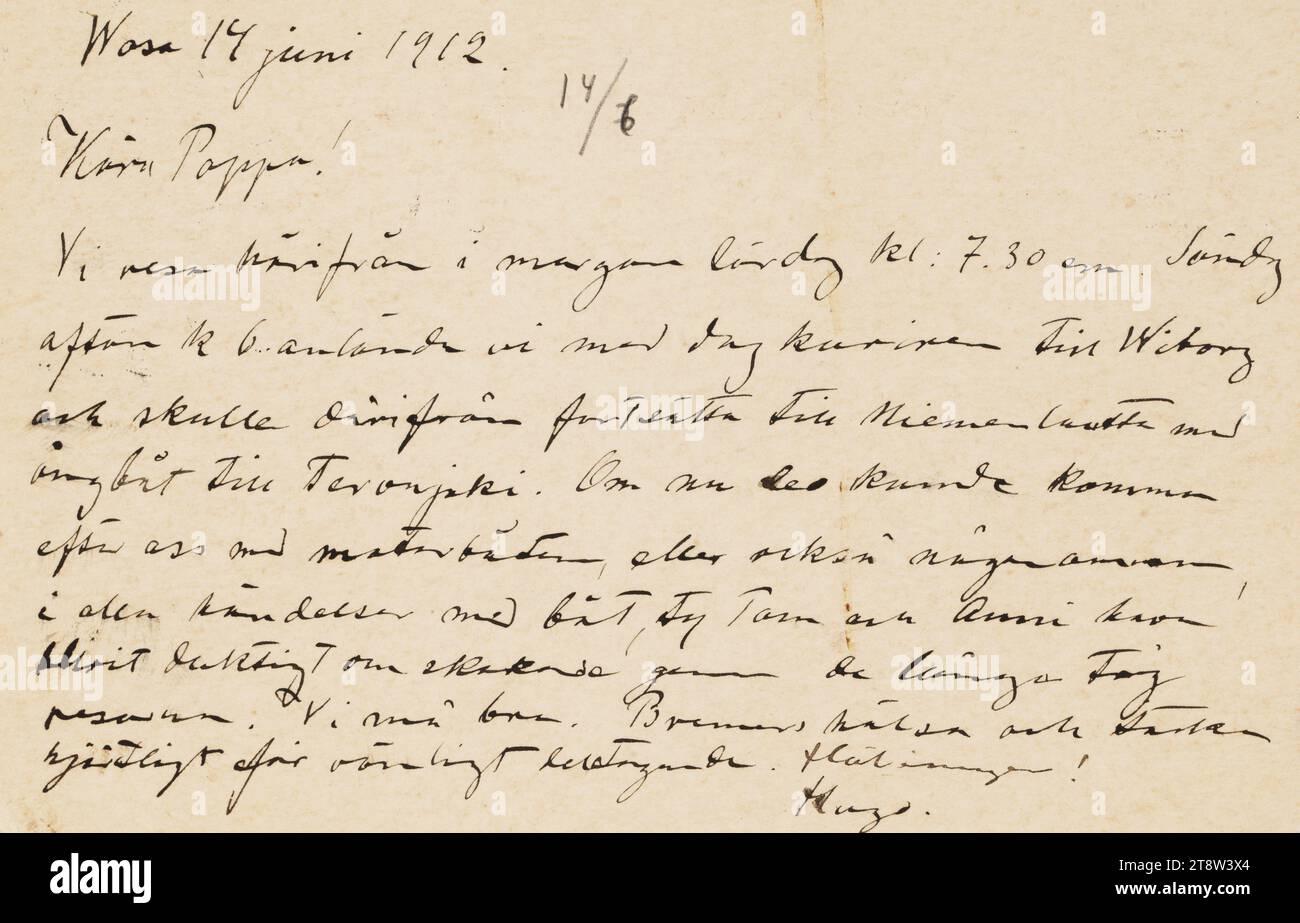 Wasa 14 juni 1912.
14/6
Kära Pappa!
Vi resa härifrån i morgon lördag kl: 7.30 em. Söndag
afton k 6. anlända vi med dagkuriren till Wiborg
och skulle därifrån fortsätta till Niemenlautta med
ångbåt till Tervajoki. Om nu Leo kunde komma
efter oss med motorbåten, eller också någon annan,
i alla händelser med båt, ty Tom och Anni hava
blivit duktigt omskakade genom de långa tåg
resorna. Vi må bra. Bremers hälsa och tacka
hjärtligt för vänligt deltagande. Hälsningar!
Hugo.
alamy
Image ID: 2T8W3X4
www.alamy.com